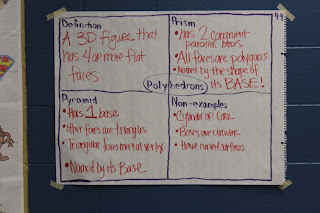 Definition
A 3D figure that
has 4 or more flat
faces
Prism
• has 2 congruent
parallel bases.
• All faces are polygons
• Named by the shape of
its BASE!
Polyhedrons
Pyramid
• Has 1 base
• other faces are triangles
• Triangular faces meet at vertex
• Named by its Base
Non-examples
• Cylinder or Cone
• Bases are circular
• Have curved surfaces